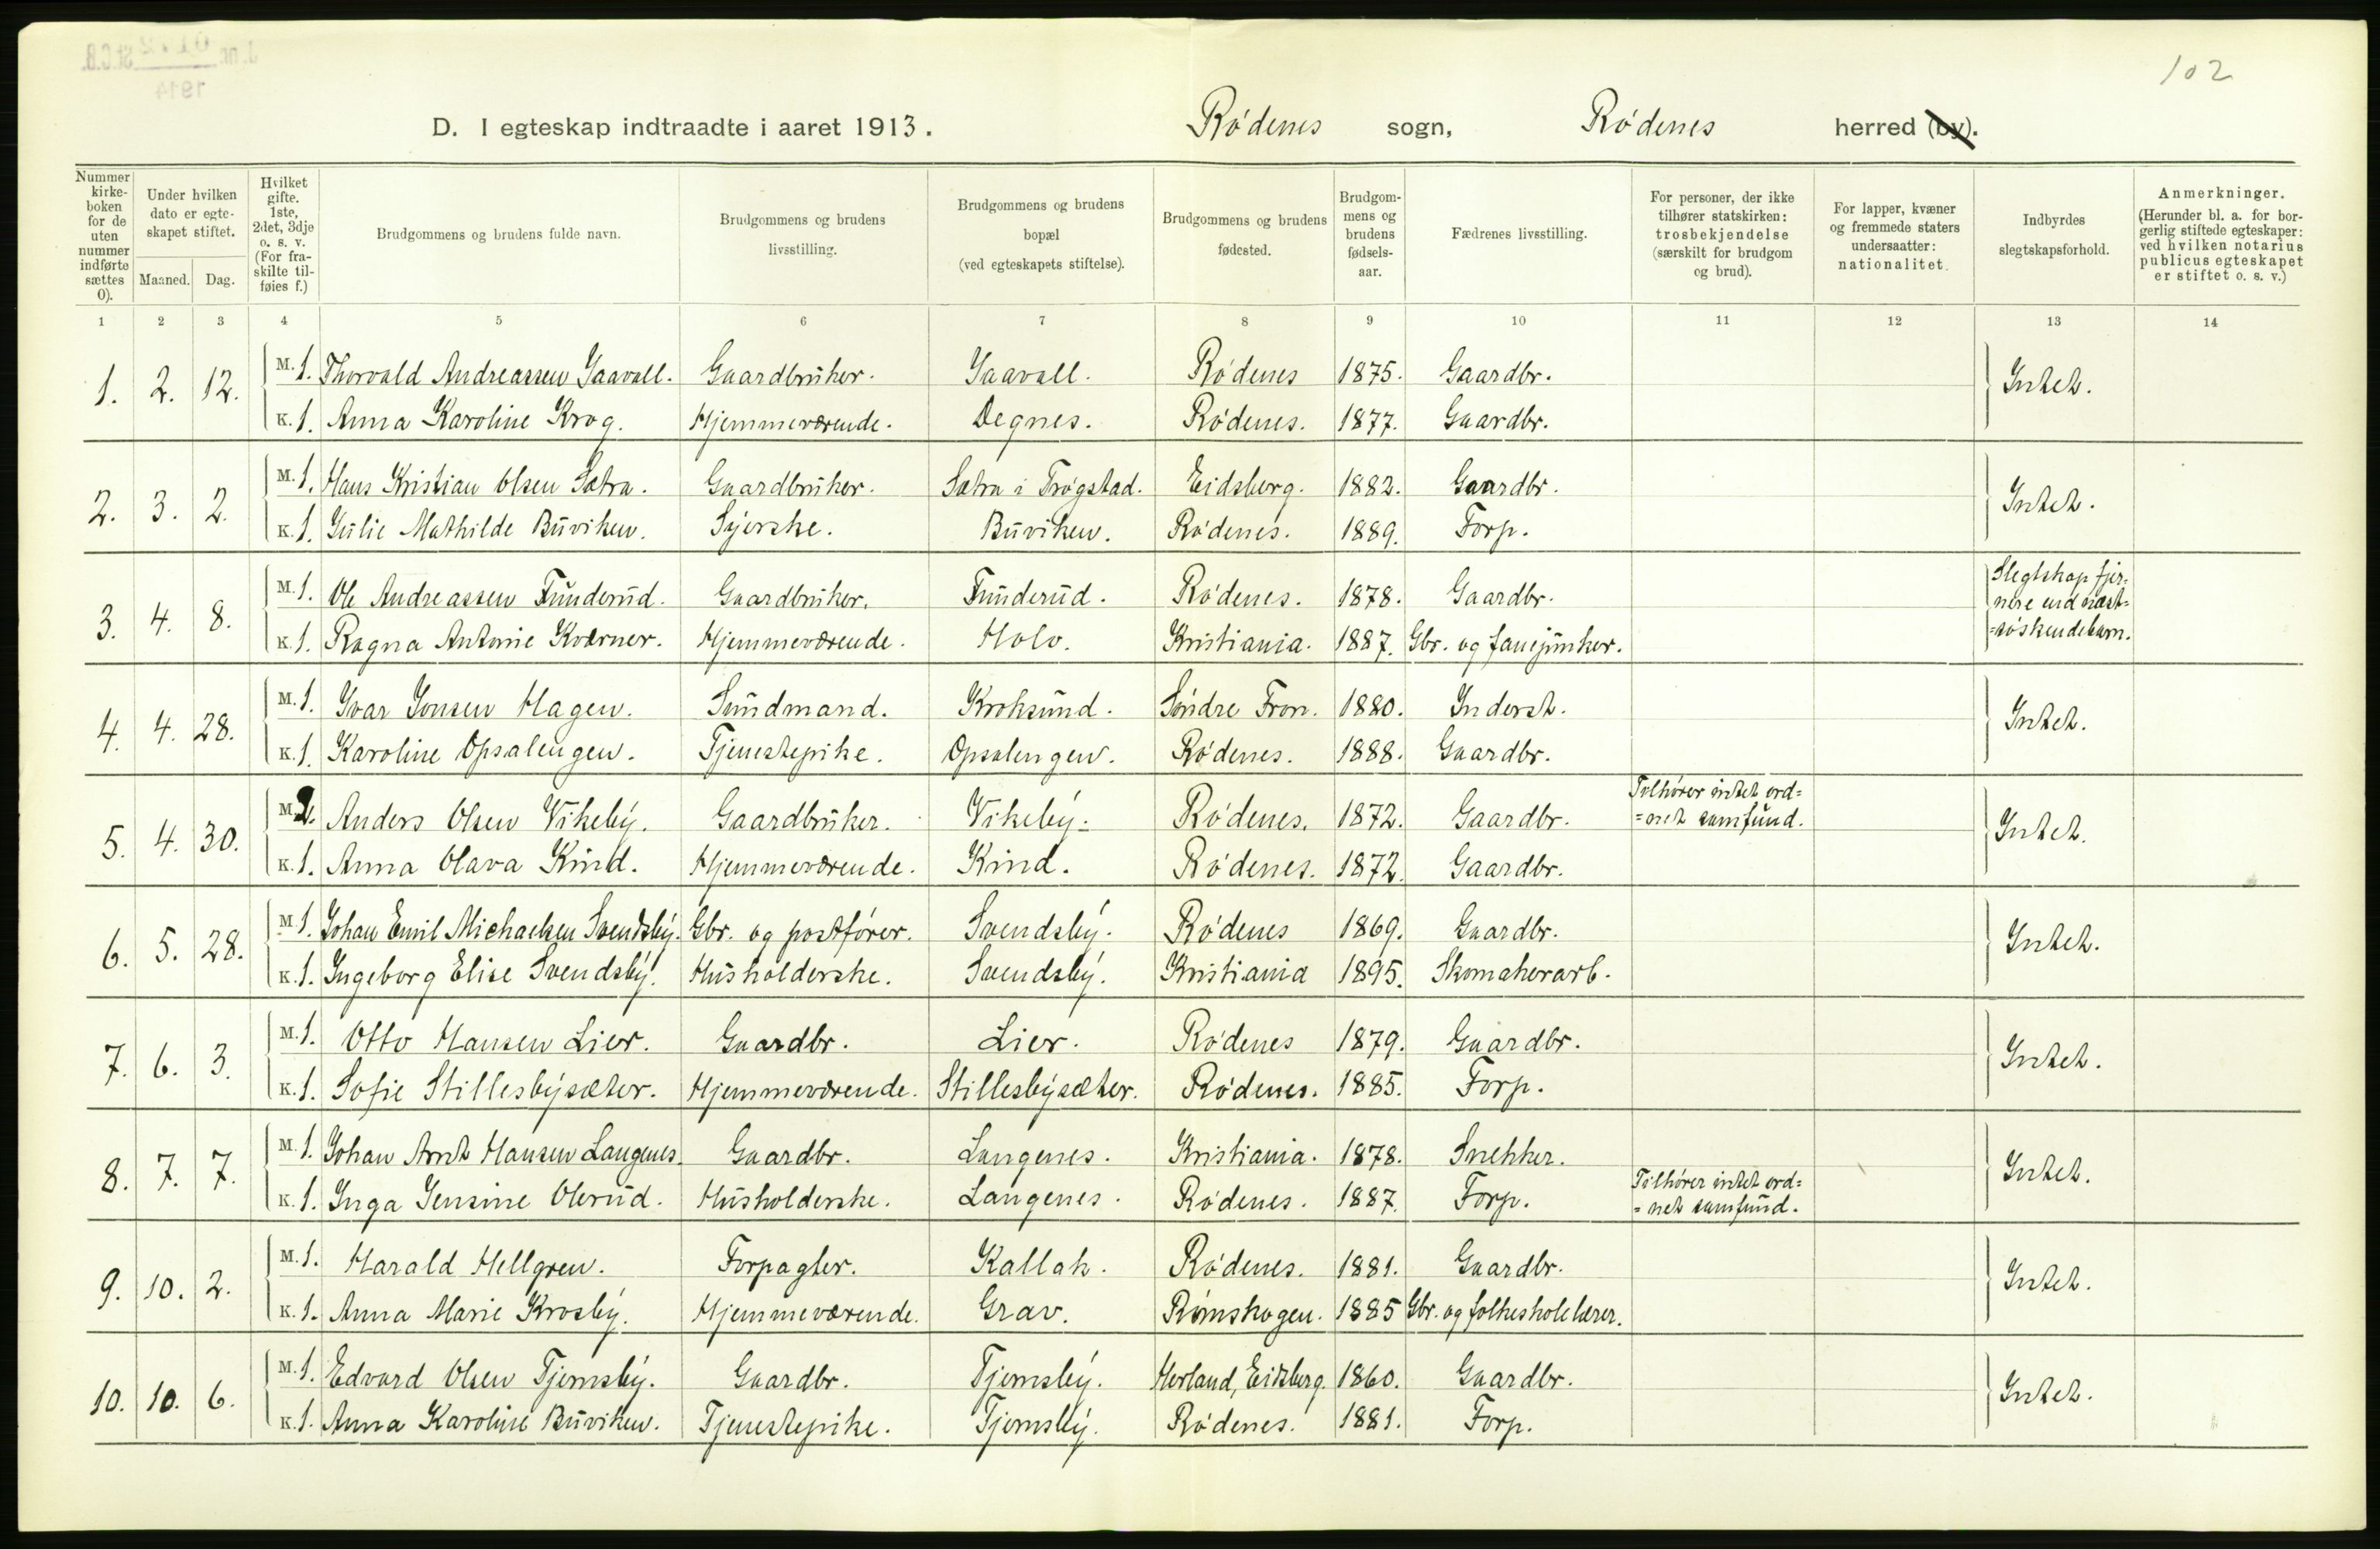 J.nr. St.C.B.
1914
102
D. I egteskap indtraadte i aaret 1913. Rødenes sogn, Rødenes herred (by).
Nummer kirkeboken for de uten nummer indførte sættes 0).
Under hvilken dato er egteskapet stiftet.
Maaned. Dag.
Hvilket gifte. 1ste, 2det, 3dje o. s. v. (For fraskilte tilføies f.)
Brudgommens og brudens fulde navn.
Brudgommens og brudens livsstilling.
Brudgommens og brudens bopæl (ved egteskapets stiftelse).
Brudgommens og brudens fødested.
Brudgommens og brudens fødselsaar.
Fædrenes livsstilling.
For personer, der ikke tilhører statskirken: trosbekjendelse (særskilt for brudgom og brud).
For lapper, kvæner og fremmede staters undersaatter: nationalitet.
Indbyrdes slegtskapsforhold.
Anmerkninger. (Herunder bl. a. for borgerlig stiftede egteskaper: ved hvilken notarius publicus egteskapet er stiftet o. s. v.)
1 2 3 4 5 6 7 8 9 10 11 12 13 14
1. 2. 12. M. 1. Thorvald Andreassen Jaavall. Gaardbruker. Jaavall. Rødenes 1875. Gaardbr. Intet.
K. 1. Anna Karoline Krog. Hjemmeværende. Degnes. Rødenes. 1877. Gaardbr.
2. 3. 2. M. 1. Hans Kristian Olsen Sætra. Gaardbruker. Sætra i Trøgstad. Eidsberg. 1882. Gaardbr. Intet.
K. 1. Julie Mathilde Buviken. Syerske. Buviken. Rødenes. 1889. Forp.
3. 4. 8. M. 1. Ole Andreassen Funderud. Gaardbruker. Funderud. Rødenes. 1878. Gaardbr. Slegtskap fjernere end næstsøskendebarn.
K. 1. Ragna Antonie Kværner. Hjemmeværende. Holo. Kristiania. 1887. Gbr. og fanejunker.
4. 4. 28. M. 1. Ivar Jonsen Hagen. Sundmand. Kroksund. Søndre Fron. 1880. Inderst. Intet.
K. 1. Karoline Opsalengen. Tjenestepike. Opsalengen. Rødenes. 1888. Gaardbr.
5. 4. 30. M. 2. Anders Olsen Vikeby. Gaardbruker. Vikeby. Rødenes. 1872. Gaardbr. Tilhører intet ordnet samfund. Intet.
K. 1. Anna Olava Kind. Hjemmeværende. Kind. Rødenes. 1872. Gaardbr.
6. 5. 28. M. 1. Johan Emil Michaelsen Svendsby. Gbr. og postfører. Svendsby. Rødenes 1869. Gaardbr. Intet.
K. 1. Ingeborg Elise Svendsby. Husholderske. Svendsby. Kristiania 1895. Skomakerarb.
7. 6. 3. M. 1. Otto Hansen Lier. Gaardbr. Lier. Rødenes 1879. Gaardbr. Intet.
K. 1. Sofie Stillesbysæter. Hjemmeværende. Stillesbysæter. Rødenes. 1885. Forp.
8. 7. 7. M. 1. Johan Arnt Hansen Langenes. Gaardbr. Langenes. Kristiania. 1878. Snekker. Intet.
K. 1. Inga Jensine Olerud. Husholderske. Langenes. Rødenes. 1887. Forp. Tilhører intet ordnet samfund.
9. 10. 2. M. 1. Harald Hellgren. Forpagter. Kallak. Rødenes. 1881. Gaardbr. Intet.
K. 1. Anna Marie Krosby. Hjemmeværende. Grav. Rømskogen. 1885 Gbr. og folkeskolelærer.
10. 10. 6. M. 1. Edvard Olsen Tjernsby. Gaardbr. Tjernsby. Herland, Eidsberg. 1860. Gaardbr. Intet.
K. 1. Anna Karoline Buviken. Tjenestepike. Tjernsby. Rødenes. 1881. Forp.